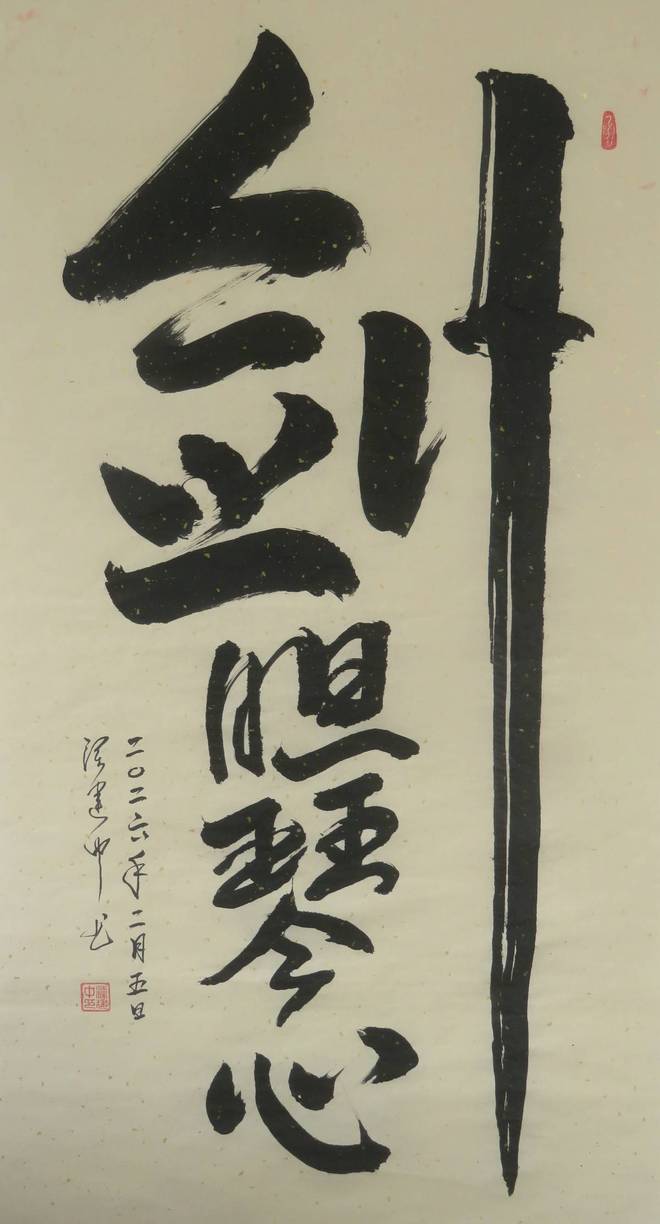 剑胆琴心
二〇二六年二月五日
梁建中书